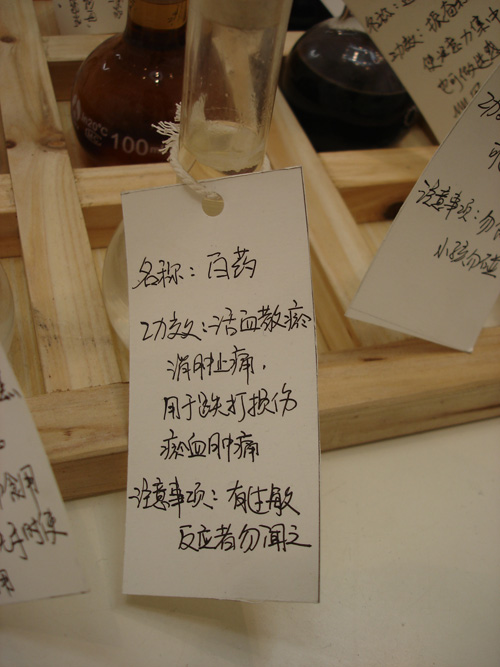 名称：百药
功效：活血散瘀
消肿止痛.
用于跌打损伤
瘀血肿痛
注意事项：有过敏
反应者勿闻之
100
名称：
功效：
使注意力集中
注意事项：勿
小孩勿碰